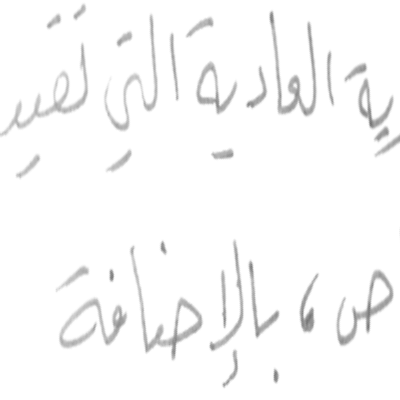 ية العادية التي تقيد
ص، بالإضافة